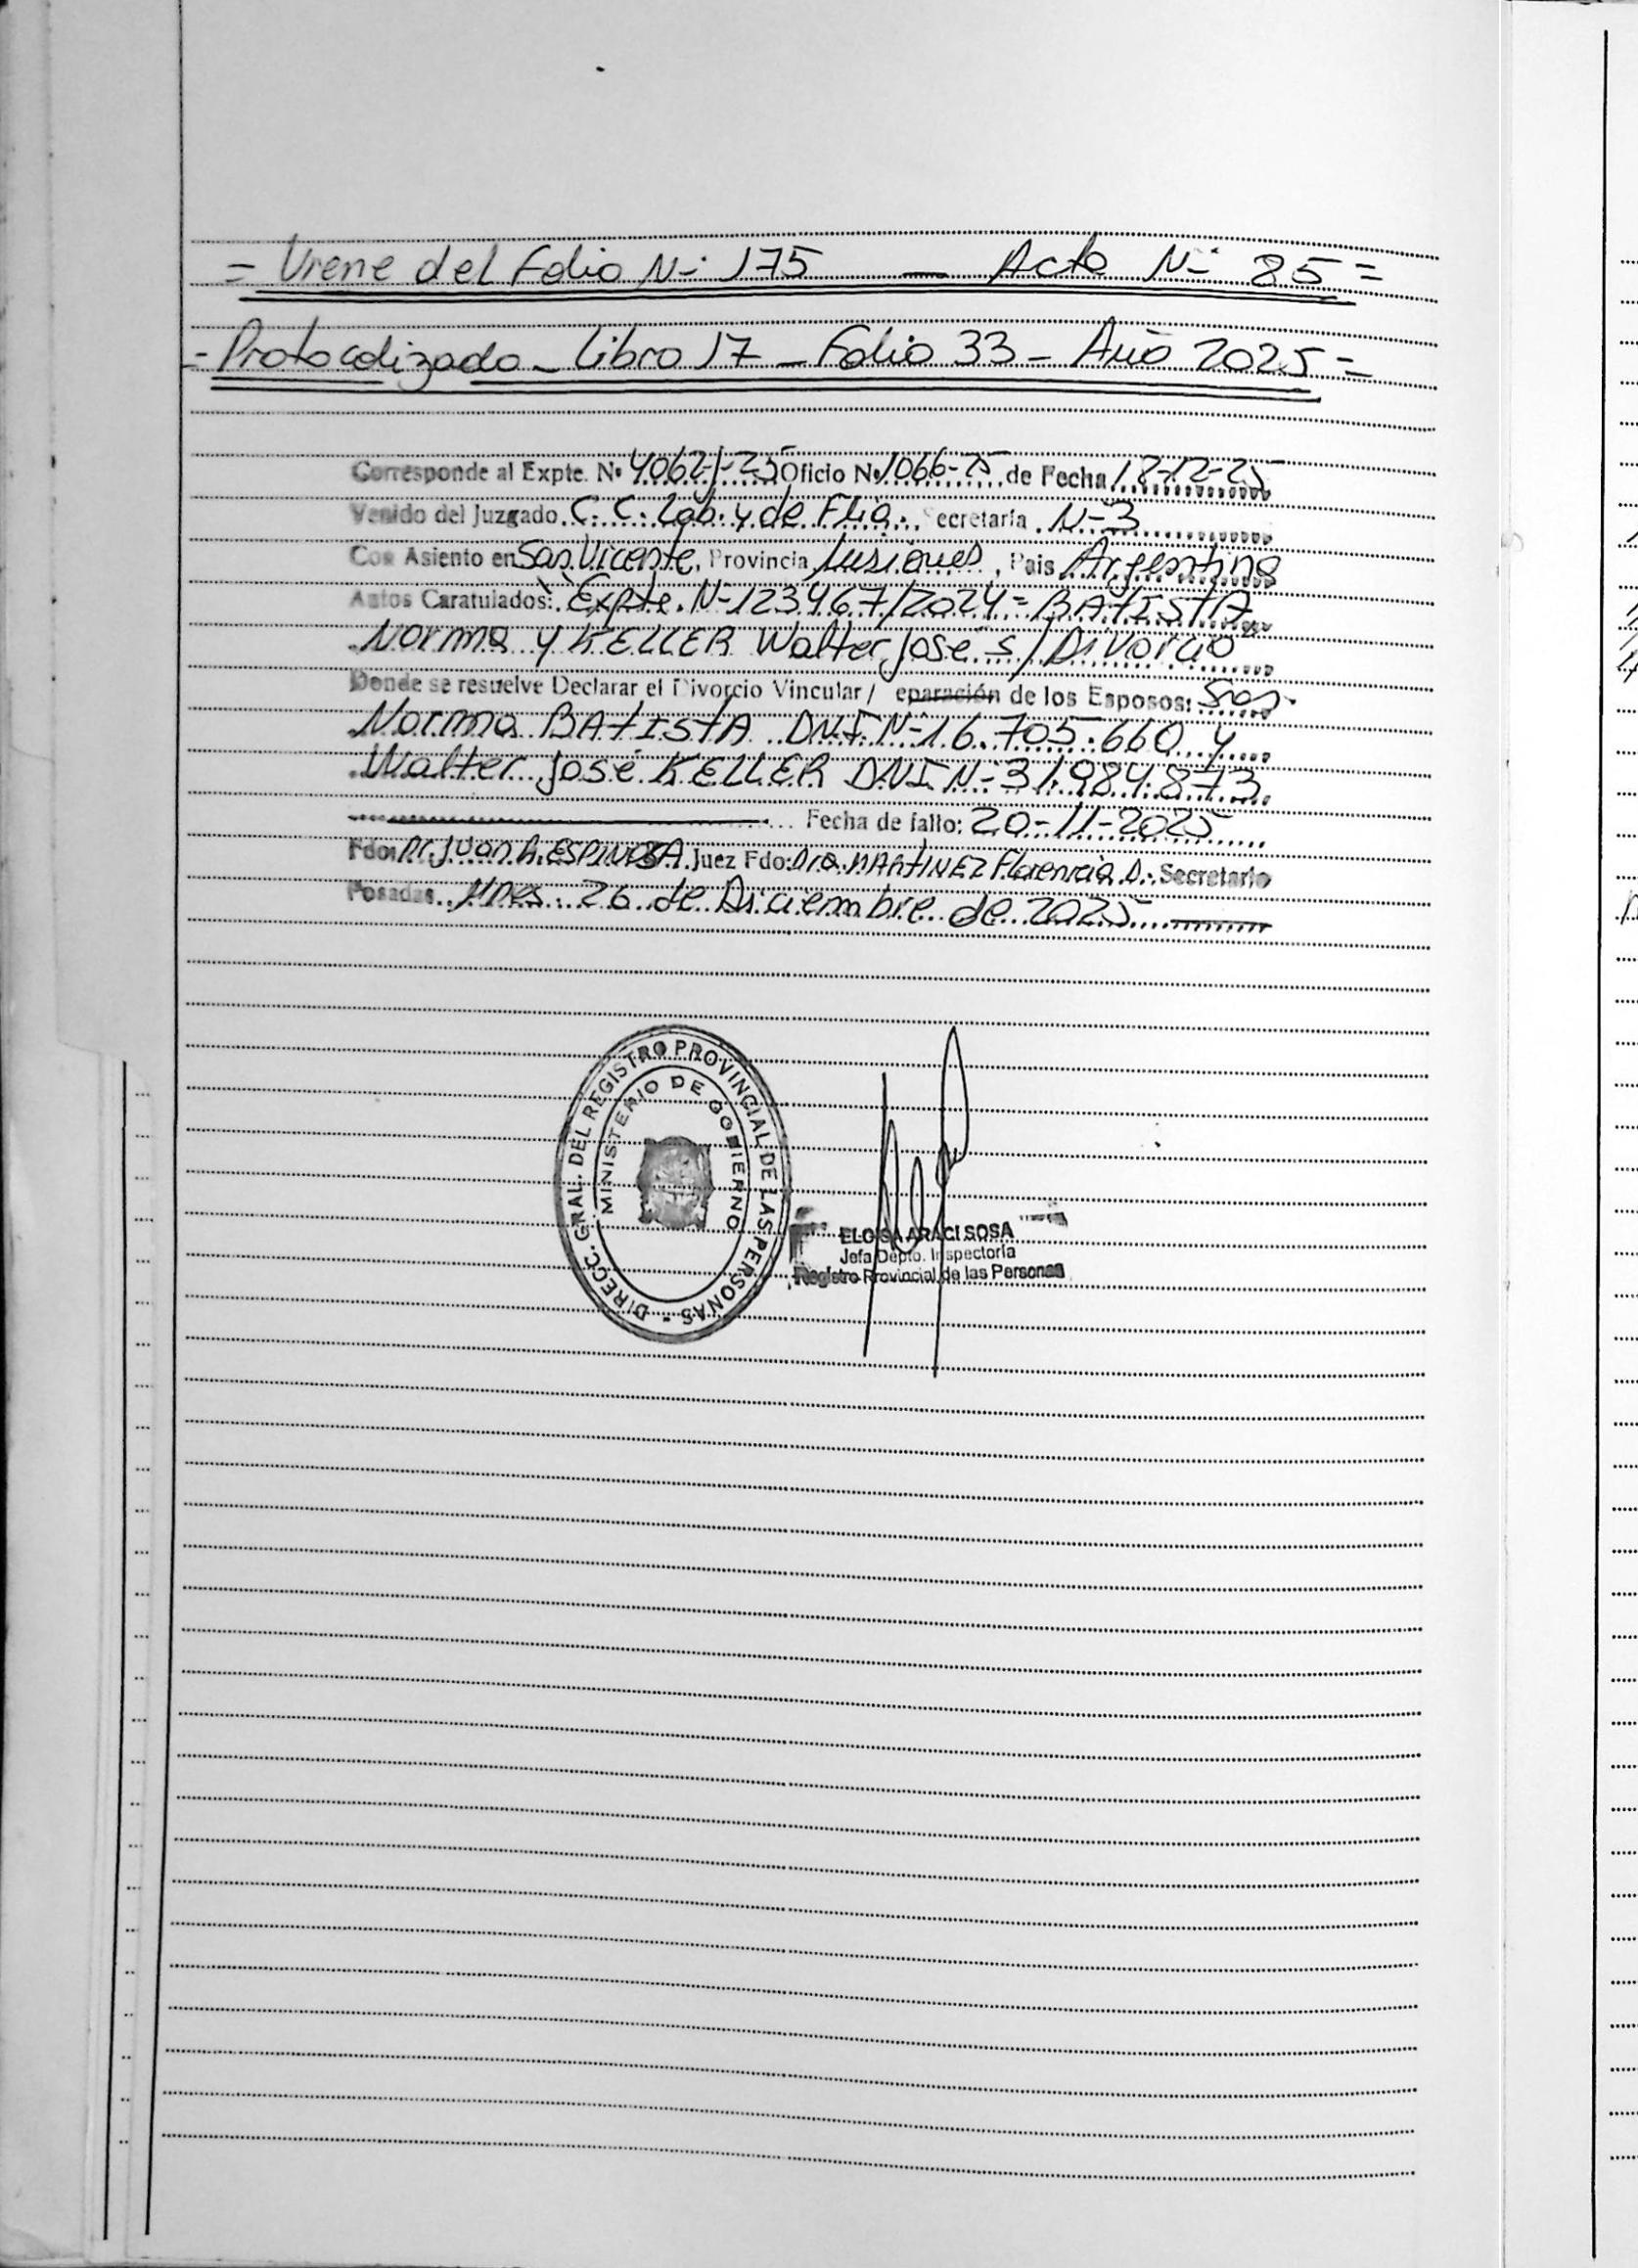 = Viene del Folio N-: 175 — Acta N-: 85 =
= Protocolizado - Libro 17 - Folio 33 - Año 2025 =
Corresponde al Expte. Nº 4062-J-25 Oficio Nº 1066-25 de Fecha 18-12-25
Venido del Juzgado C. C. Lab. y de Flia. Secretaría N-3
Con Asiento en San Vicente, Provincia Misiones, Pais Argentina
Autos Caratulados: Expte. N-123467/2024 = BATISTA
Norma y KELLER Walter José s/ Divorcio
Donde se resuelve Declarar el Divorcio Vincular / eparación de los Esposos: Sres.
Norma BATISTA DNI N-16.705.660 y
Walter José KELLER DNI N-31.984.873
Fecha de fallo: 20-11-2025
Fdo: Dr. Juan A. ESPINOSA Juez Fdo: Dra. MARTINEZ Florencia D. Secretario
Posadas, Mnes. 26 de Diciembre de 2025
DIRECC. GRAL. DEL REGISTRO PROVINCIAL DE LAS PERSONAS -
MINISTERIO DE GOBIERNO
ELOISA ARACI SOSA
Jefa Depto. Inspectoría
Registro Provincial de las Personas